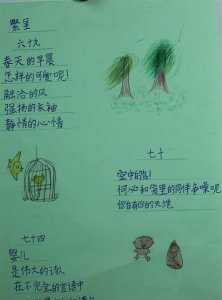 繁星
六十九
春天的早晨
怎样的可爱呢!
融洽的风
扬的衣袖
静悄的心情
七十
空中的鸟!
何必和笼里的同伴争噪呢
你自有你的天地
七十四
婴儿
是伟大的诗人
在不完全的言语中